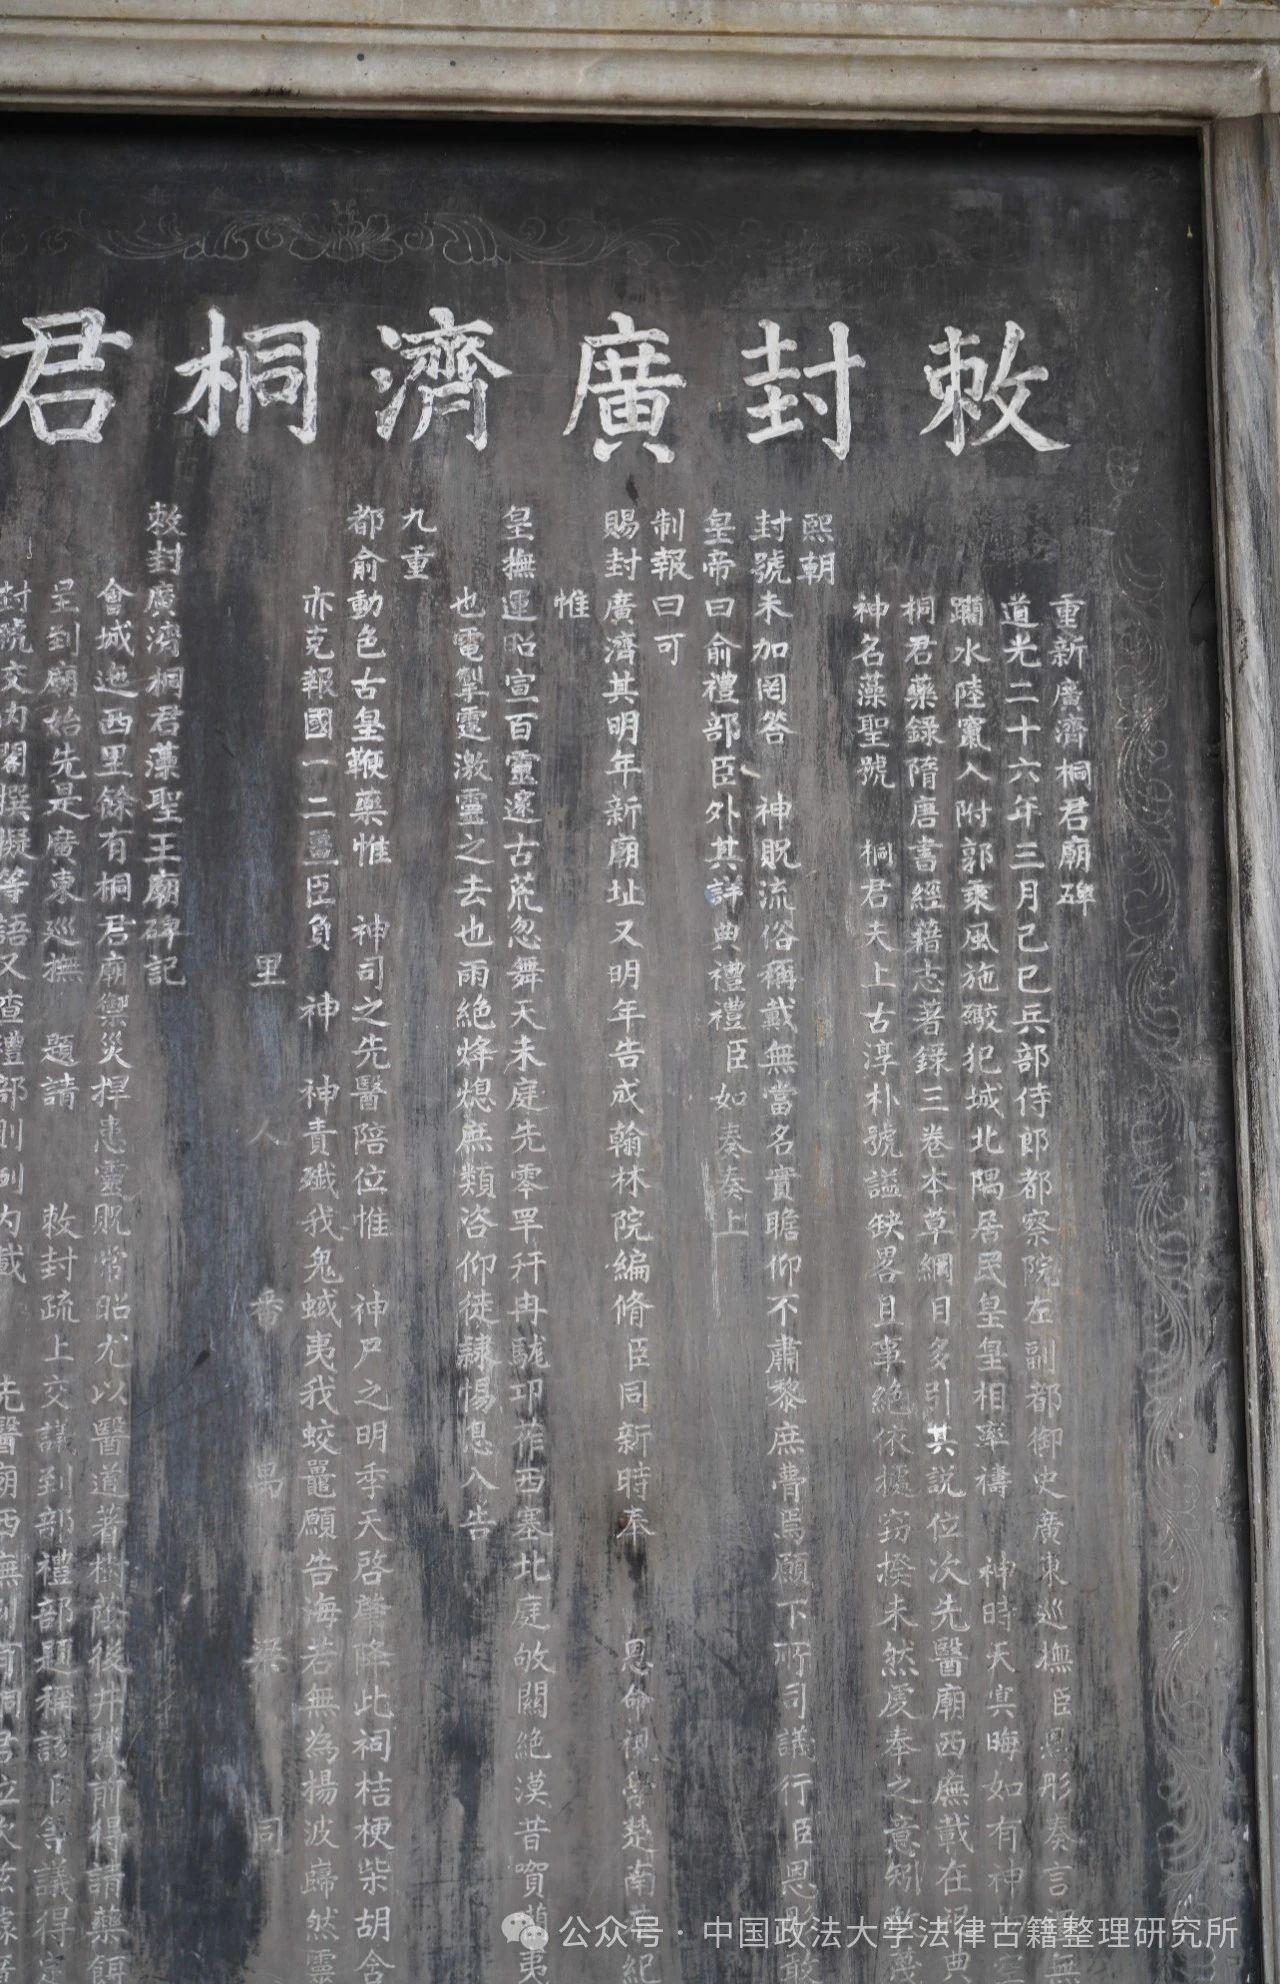 敕封廣濟桐君
重新廣濟桐君廟碑
道光二十六年三月己巳兵部侍郎都察院左副都御史廣東巡撫臣恩彤奏言
躪水陸竄入附郭乘風施礮犯城北隅居民皇皇相率禱 神時天寔晦如有神
桐君藥錄隋唐書經籍志著錄三卷本草綱目多引其説位次先醫廟西廡載在 典
神名藻聖號 桐君夫上古淳朴號謚鈌畧且事絕依據窃揆未然虔奉之意
熙朝
封號未加罔答 神貺流俗稱戴無當名實瞻仰不肅黎庶瞢焉願下所司議行臣恩彤
皇帝曰俞禮部臣外其詳典禮禮臣如奏奏上
制報曰可
賜封廣濟其明年新廟址又明年告成翰林院編脩臣同新時奉 恩命視學楚南 紀
惟
皇撫運昭宣百靈邃古荒忽舞天未庭先零罕幵冉駹邛莋西塞北庭敂關絕漠昔賀蘭夷
也電掣霆激靈之去也雨絕烽熄無類咨仰徒隸惕息入告
九重
都俞動色古皇鞭藥惟 神司之先醫陪位惟 神尸之明季天啓肇降此祠桔梗柴胡含
亦克報國一二臣負 神 神責殲我鬼蜮夷我蛟鼉願告海若無為揚波巋然靈
里人番禺梁同
敕封廣濟桐君藻聖王廟碑記
會城迤西里餘有桐君廟禦災捍患靈貺常昭尤以醫道著樹蔭後井甃前得請藥餌
呈到廟始先是廣東巡撫 題請 敕封疏上交議到部禮部題稱該臣等議得定
封號交內閣撰擬等語又查禮部則例內載 先醫廟西廡列有桐君位次
公众号 · 中国政法大学法律古籍整理研究所